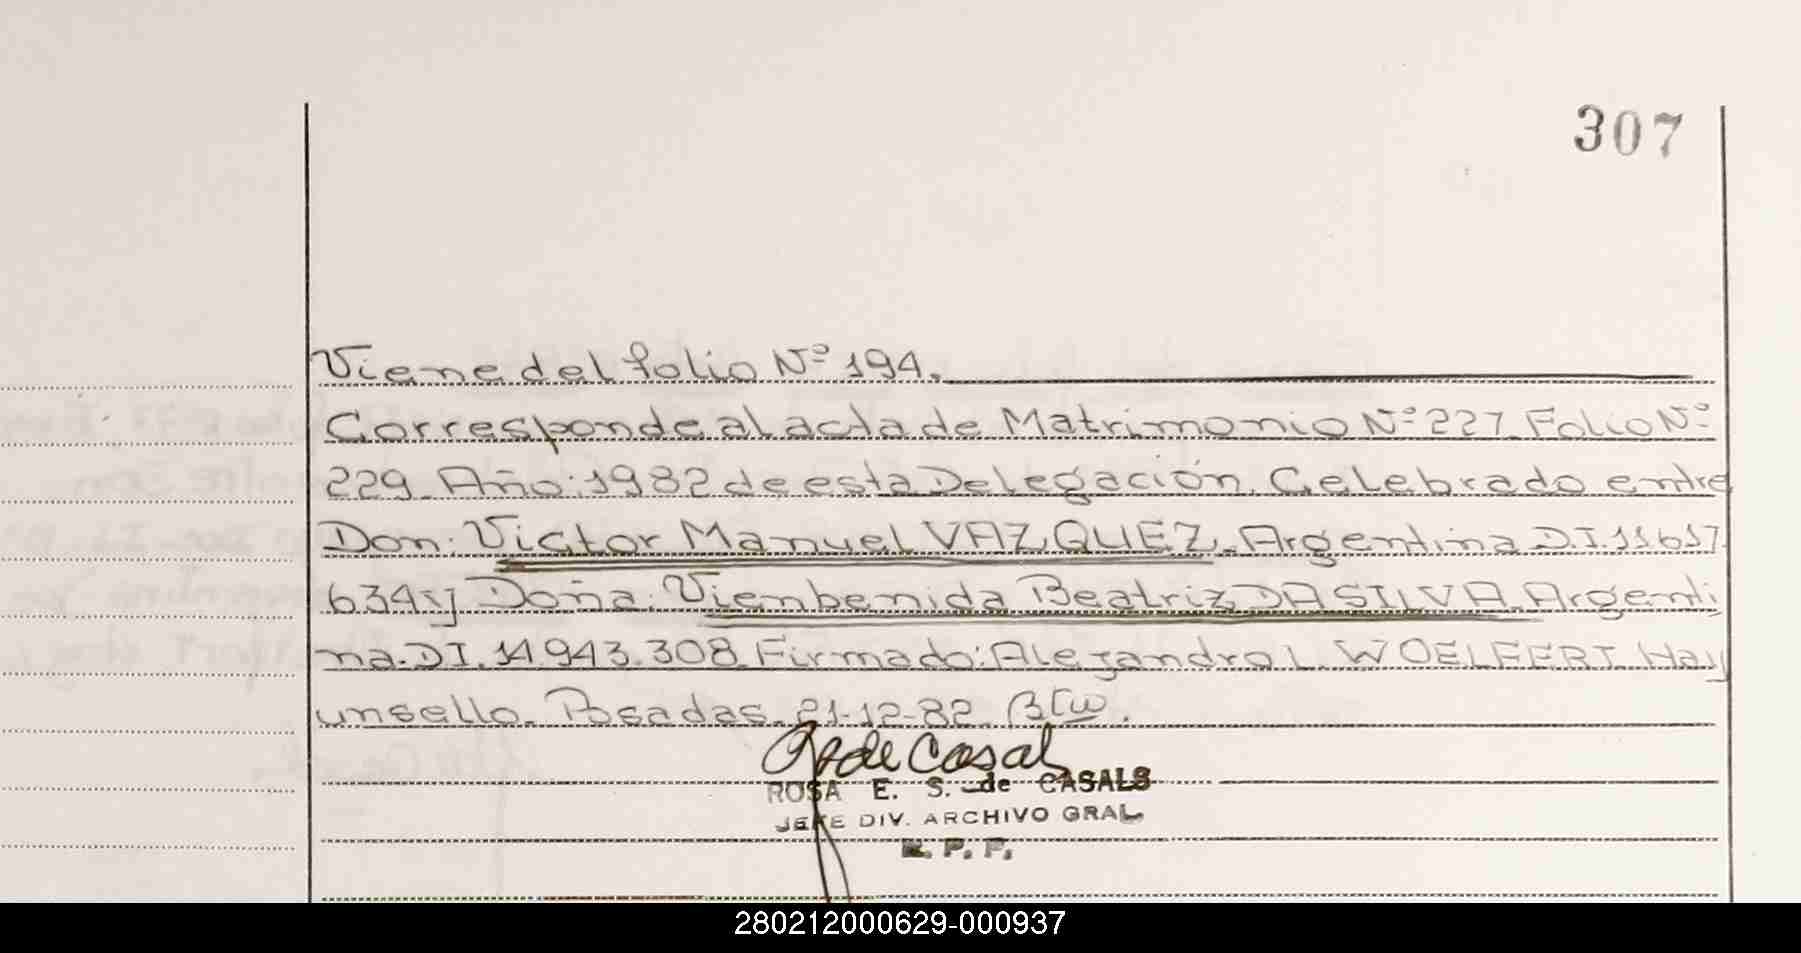 307
Viene del folio Nº 194.
Corresponde al acta de Matrimonio Nº 227. Folio Nº
229. Año: 1982 de esta Delegación. Celebrado entre
Don: Victor Manuel VAZQUEZ. Argentina D.I. 11617
634 y Doña: Vienbenida Beatriz DA SILVA. Argenti
na. DI. 14.943.308. Firmado: Alejandro L. WOELFERT. Hay
un sello. Posadas. 21-12-82.
de Casals
ROSA E. S. de CASALS
JEFE DIV. ARCHIVO GRAL
R. P. P.
280212000629-000937